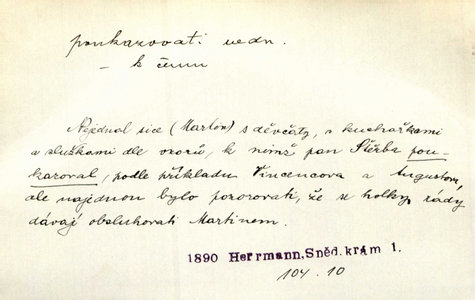 poukazovati nedn.
— k čemu
Nejednal sice (Martin) s děvčaty, s kuchařkami
a služkami dle vzorů, k nimž pan Štěrba pou-
kazoval, podle příkladu Vincencova a Augustova,
ale najednou bylo pozorovati, že se holky rády
dávají obsluhovati Martinem.
1890 Herrmann, Sněd. krám 1.
104.10